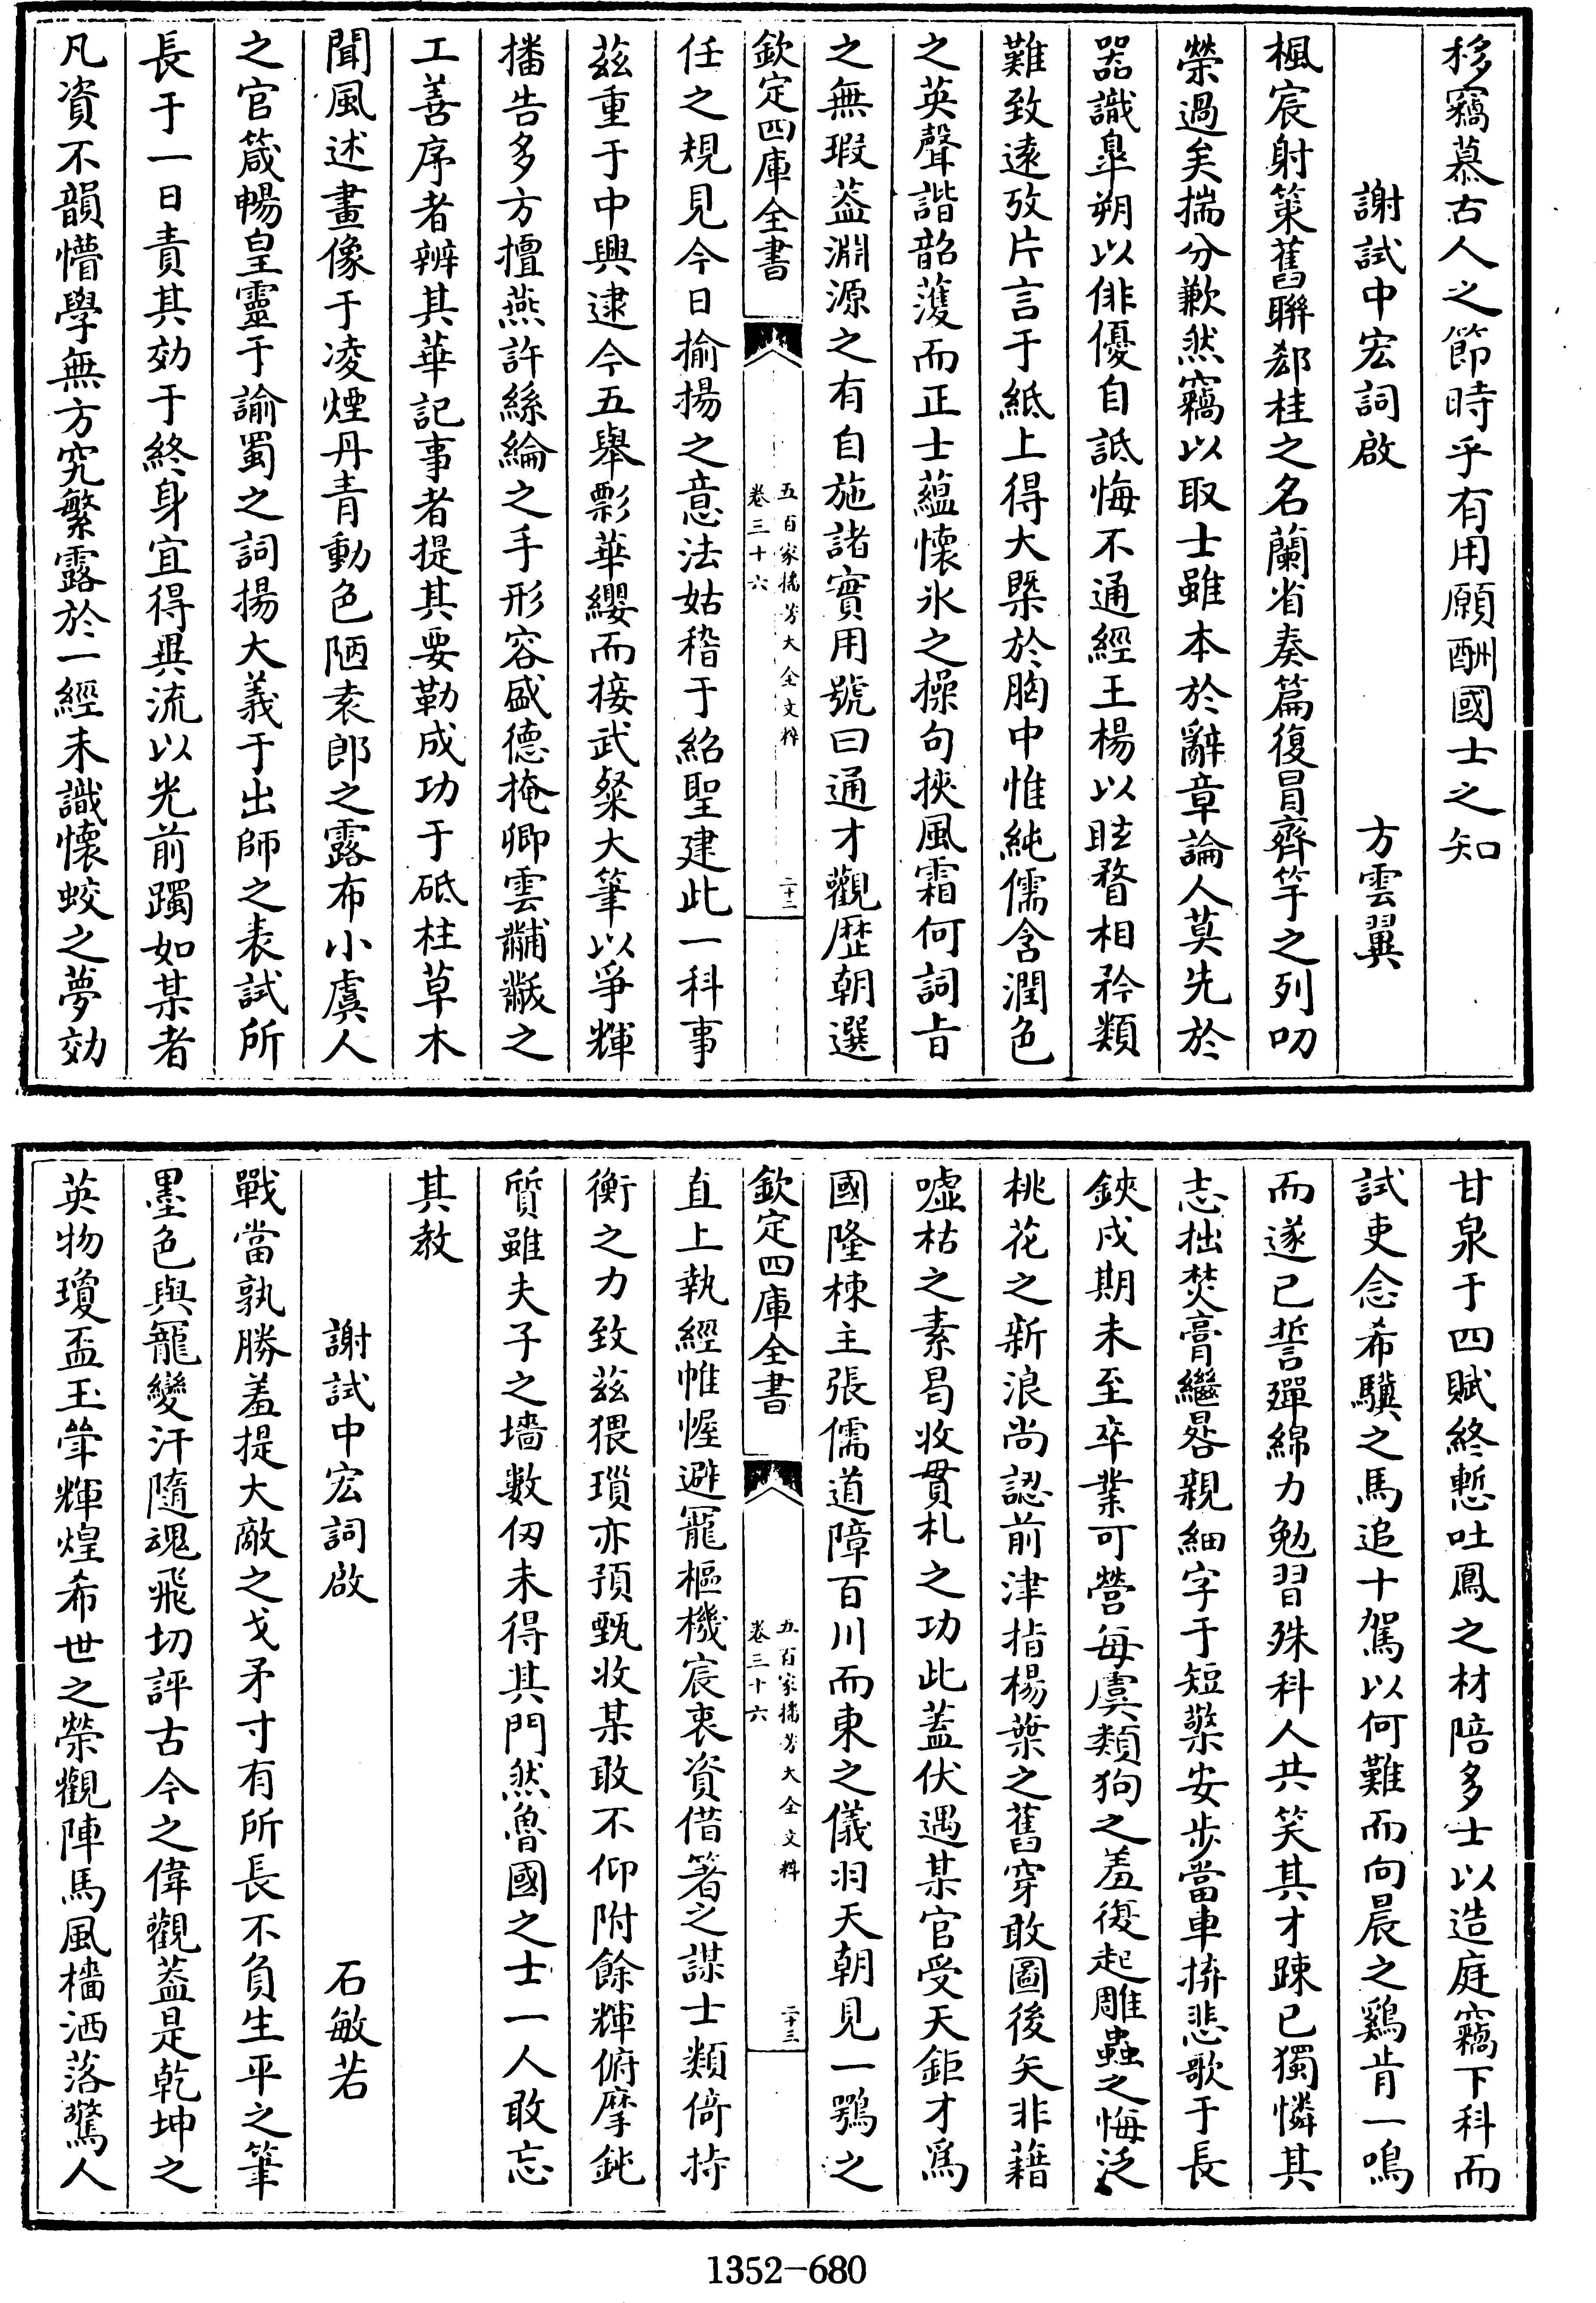 移竊慕古人之節時乎有用願酬國士之知
謝試中宏詞啟　方雲翼
楓宸射策舊聯郄桂之名蘭省奏篇復冒齊竽之列叨
榮過矣揣分歉然竊以取士雖本於辭章論人莫先於
器識臯朔以俳優自詆悔不通經王楊以眩瞀相矜類
難致遠攷片言于紙上得大槩於胸中惟純儒含潤色
之英聲諧韶濩而正士蘊懷氷之操句挾風霜何詞㫖
之無瑕葢淵源之有自施諸實用號曰通才觀歴朝選
欽定四庫全書
五百家播芳大全文粹
卷三十六
二十二
任之規見今日揄揚之意法姑稽于紹聖建此一科事
茲重于中興逮今五舉影華纓而接武粲大筆以爭輝
播告多方擅燕許絲綸之手形容盛德掩卿雲黼黻之
工善序者辨其華記事者提其要勒成功于砥柱草木
聞風述畫像于凌煙丹青動色陋袁郎之露布小虞人
之官箴暢皇靈于諭蜀之詞揚大義于出師之表試所
長于一日責其効于終身宜得異流以光前躅如某者
凡資不韻懵學無方究繁露於一經未識懷蛟之夢効
甘泉于四賦終慙吐鳳之材陪多士以造庭竊下科而
試吏念希驥之馬追十駕以何難而向晨之鷄肯一鳴
而遂已誓殫綿力勉習殊科人共笑其才踈已獨憐其
志拙焚膏繼晷親細字于短檠安步當車捹悲歌于長
鋏戍期未至卒業可營每虞類狗之羞復起雕蟲之悔泛
桃花之新浪尚認前津指楊葉之舊穿敢圖後矢非藉
嘘枯之素曷收貫札之功此蓋伏遇某官受天鉅才爲
國隆棟主張儒道障百川而東之儀羽天朝見一鶚之
欽定四庫全書
五百家播芳大全文粹
卷三十六
二十三
直上執經帷幄避寵樞機宸衷資借箸之謀士類倚持
衡之力致茲猥瑣亦預甄收某敢不仰附餘輝俯摩鈍
質雖夫子之墻數仞未得其門然魯國之士一人敢忘
其教
謝試中宏詞啟　石敏若
戰當孰勝羞提大敵之戈矛寸有所長不負生平之筆
墨色與寵變汗隨魂飛切評古今之偉觀葢是乾坤之
英物瓊盃玉斝輝煌希世之榮觀陣馬風檣洒落驚人
1352-680